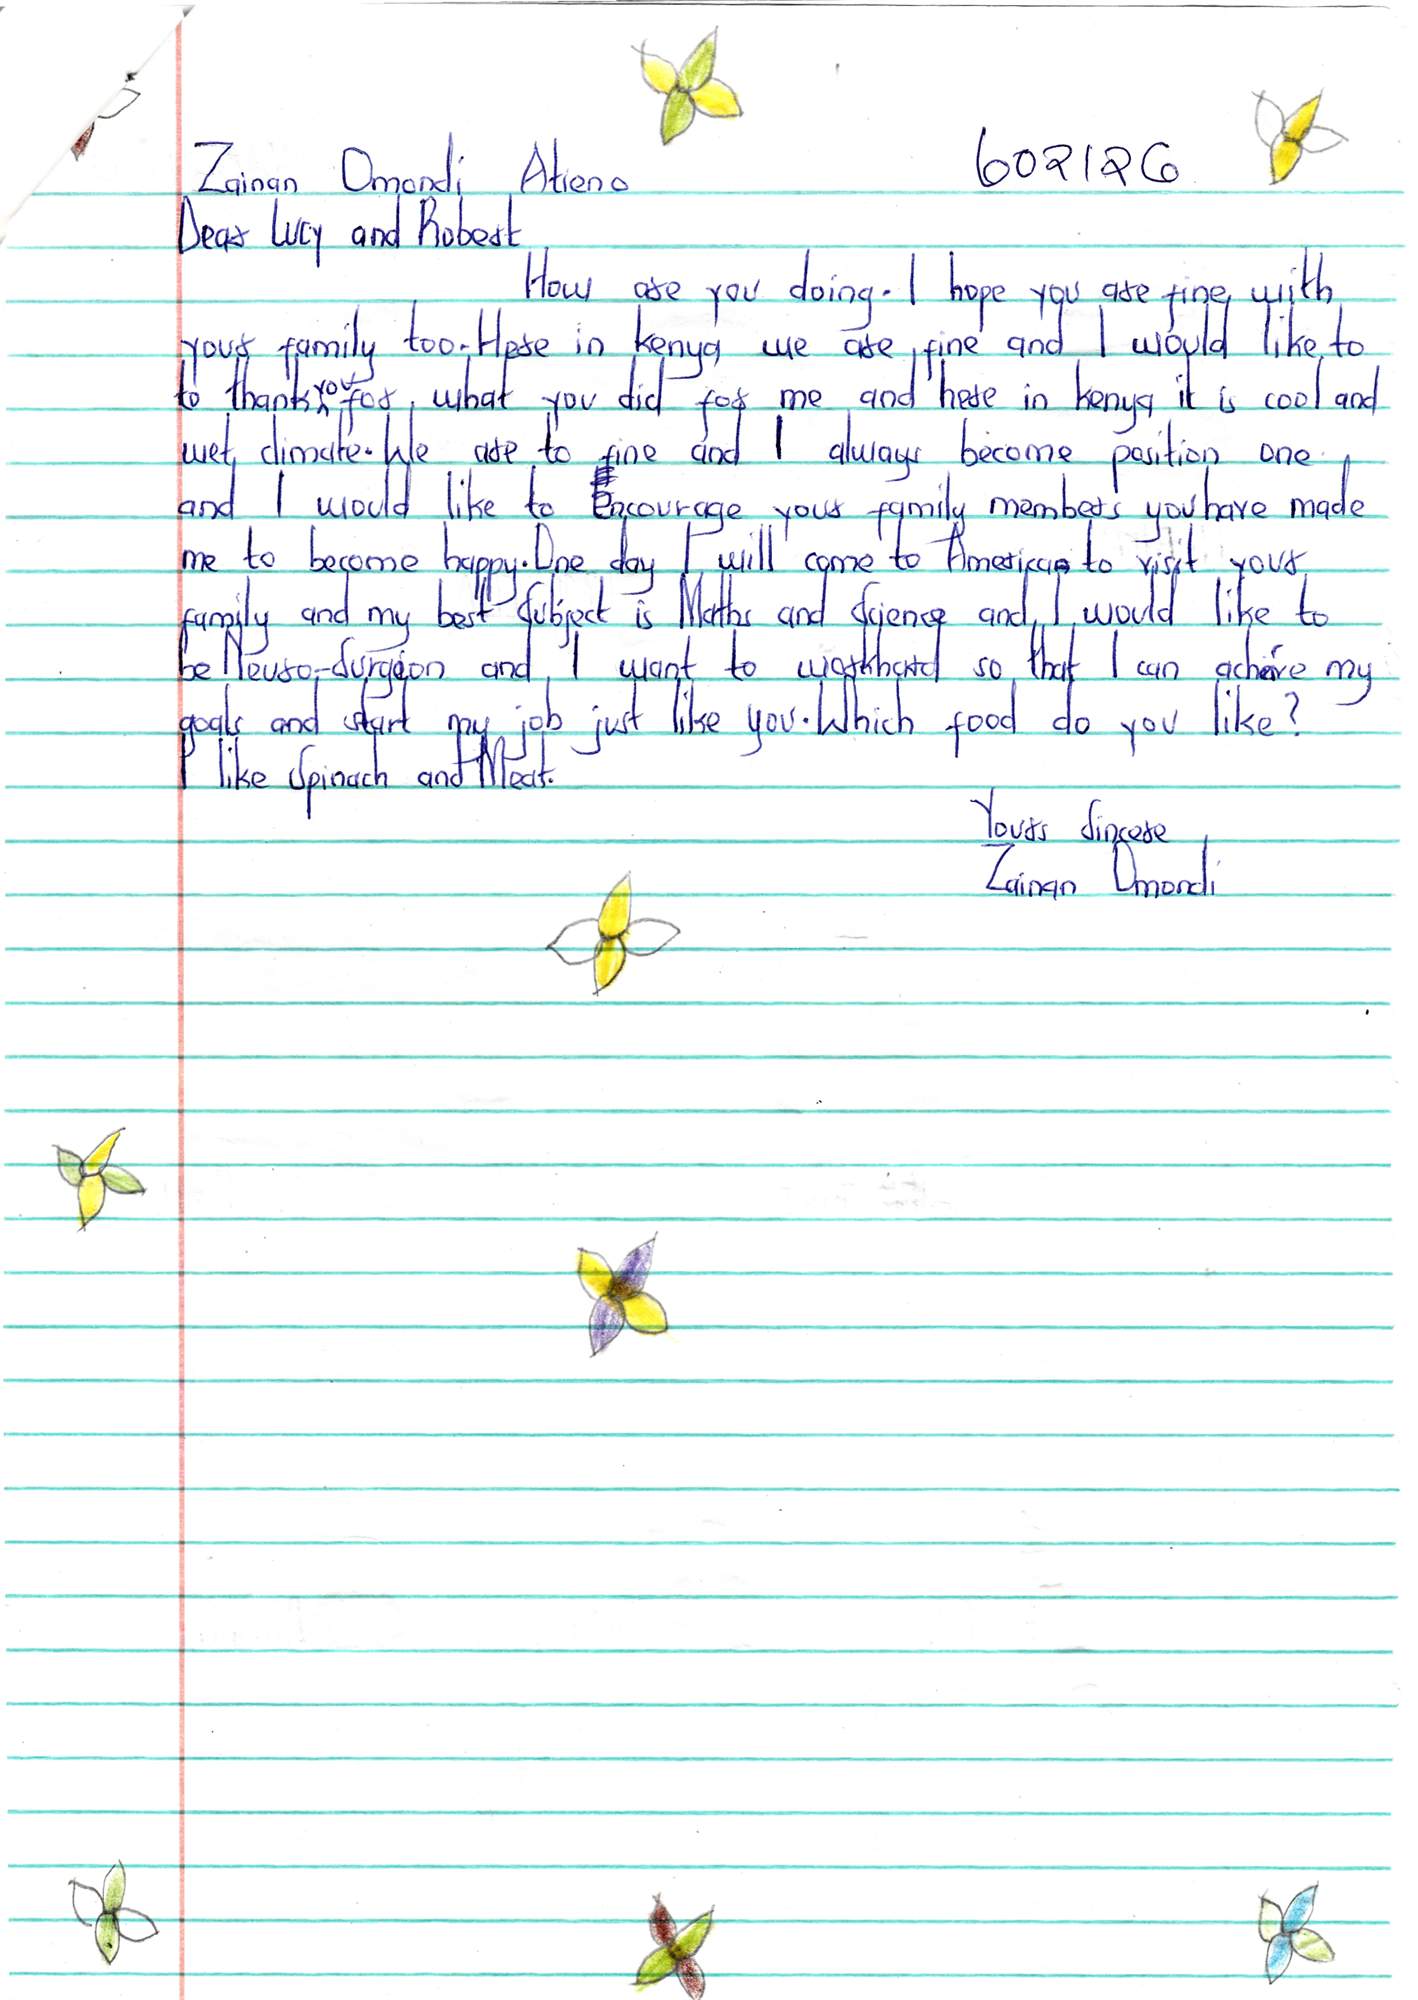 Zainan Omondi Atieno 602126
Dear Lucy and Robert
How are you doing. I hope you are fine with
your family too. Here in kenya we are fine and I would like to
to thank you for what you did for me and here in kenya it is cool and
wet climate. We are to fine and I always become position one
and I would like to Encourage your family members you have made
me to become happy. One day I will come to American to visit your
family and my best Subject is Maths and Science and I would like to
be Neuro-Surgeon and I want to workhard so that I can acheive my
goals and start my job just like you. Which food do you like?
I like Spinach and Meat.
Yours Sincere
Zainan Omondi